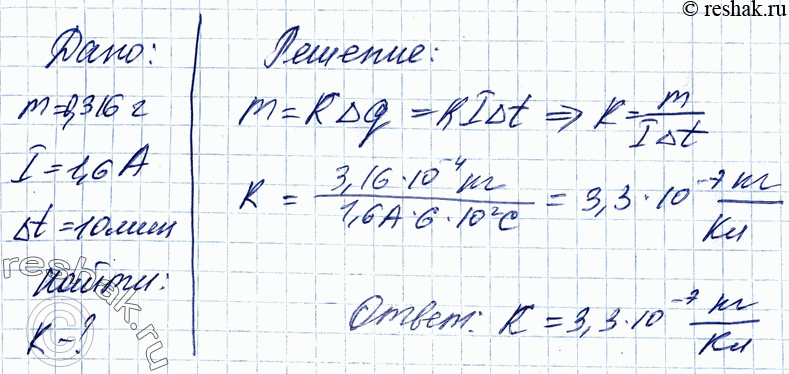 © reshak.ru
Дано:
m=0,316 г
I=1,6 А
Δt=10 мин
Найти:
К-?
Решение:
m=КΔq=КIΔt ⇒ К=m/IΔt
К = 3,16·10⁻⁴кг/1,6А·6·10²С = 3,3·10⁻⁷ кг/Кл
Ответ: К=3,3·10⁻⁷ кг/Кл
reshak.ru